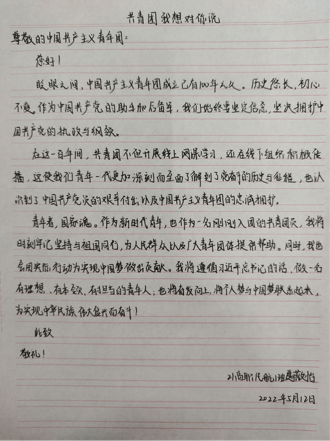 共青团 我想对你说
尊敬的中国共产主义青年团:
您好!
眨眼之间,中国共产主义青年团成立已有100年之久。历史悠长,初心
不变。作为中国共产党的助手和后备军,我们始终要坚定信念,坚决拥护中
国共产党的执政与纲领。
在这一百年间,共青团不但开展线上网课学习,还在线下组织积极
,这使我们青年一代更加深刻而全面了解到了党的历史与
到了中国共产党人的艰辛付出以及中国共产主义青年团的忠诚拥护。
青年者,国家魂。作为新时代青年,也作为一名刚刚入团的共青团员,我将
时刻牢记坚持与祖国同行,为人民群众以及广大青年团体提供帮助。同时,我也
会用实际行动为实现中国梦做出贡献。我将遵循习近平总书记的话,做一名
有理想、有本领、有担当的青年人;也将奋发向上,将个人梦与中国梦联系起来,
为实现中华民族伟大复兴而奋斗!
此致
敬礼!
21高职民航1班
2022年5月12日